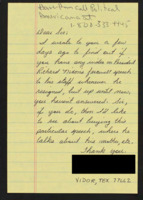 Call Political
Americana
1-800-333-4445
Dear Sir:
I wrote to you a few
days ago to find out if
you have any video on President
Richard Nixon's farewell speech
to his staff when he
resigned, but up until now
you haven't answered. Sir,
if you do, then I'd like
to see about buying this
particular speech, where he
talks about his mother, etc.
Thank you
VIDOR, TEX 77662